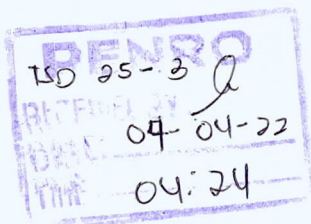 PENRO
TSD 25-3
RECEIVED BY
04-04-22
DATE
TIME 04:24